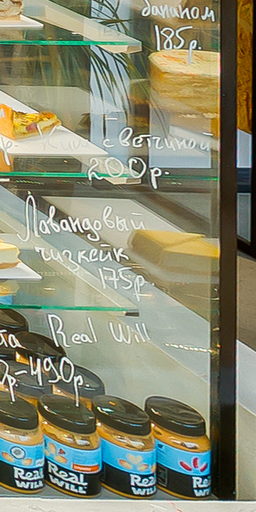 бананом
185р.
с ветчиной
200р.
р.
Лавандовый
чизкейк
175р.
та Real Will
р.-490р.
Real
WILL
Real
WILL
Real
WILL
Real
WILL